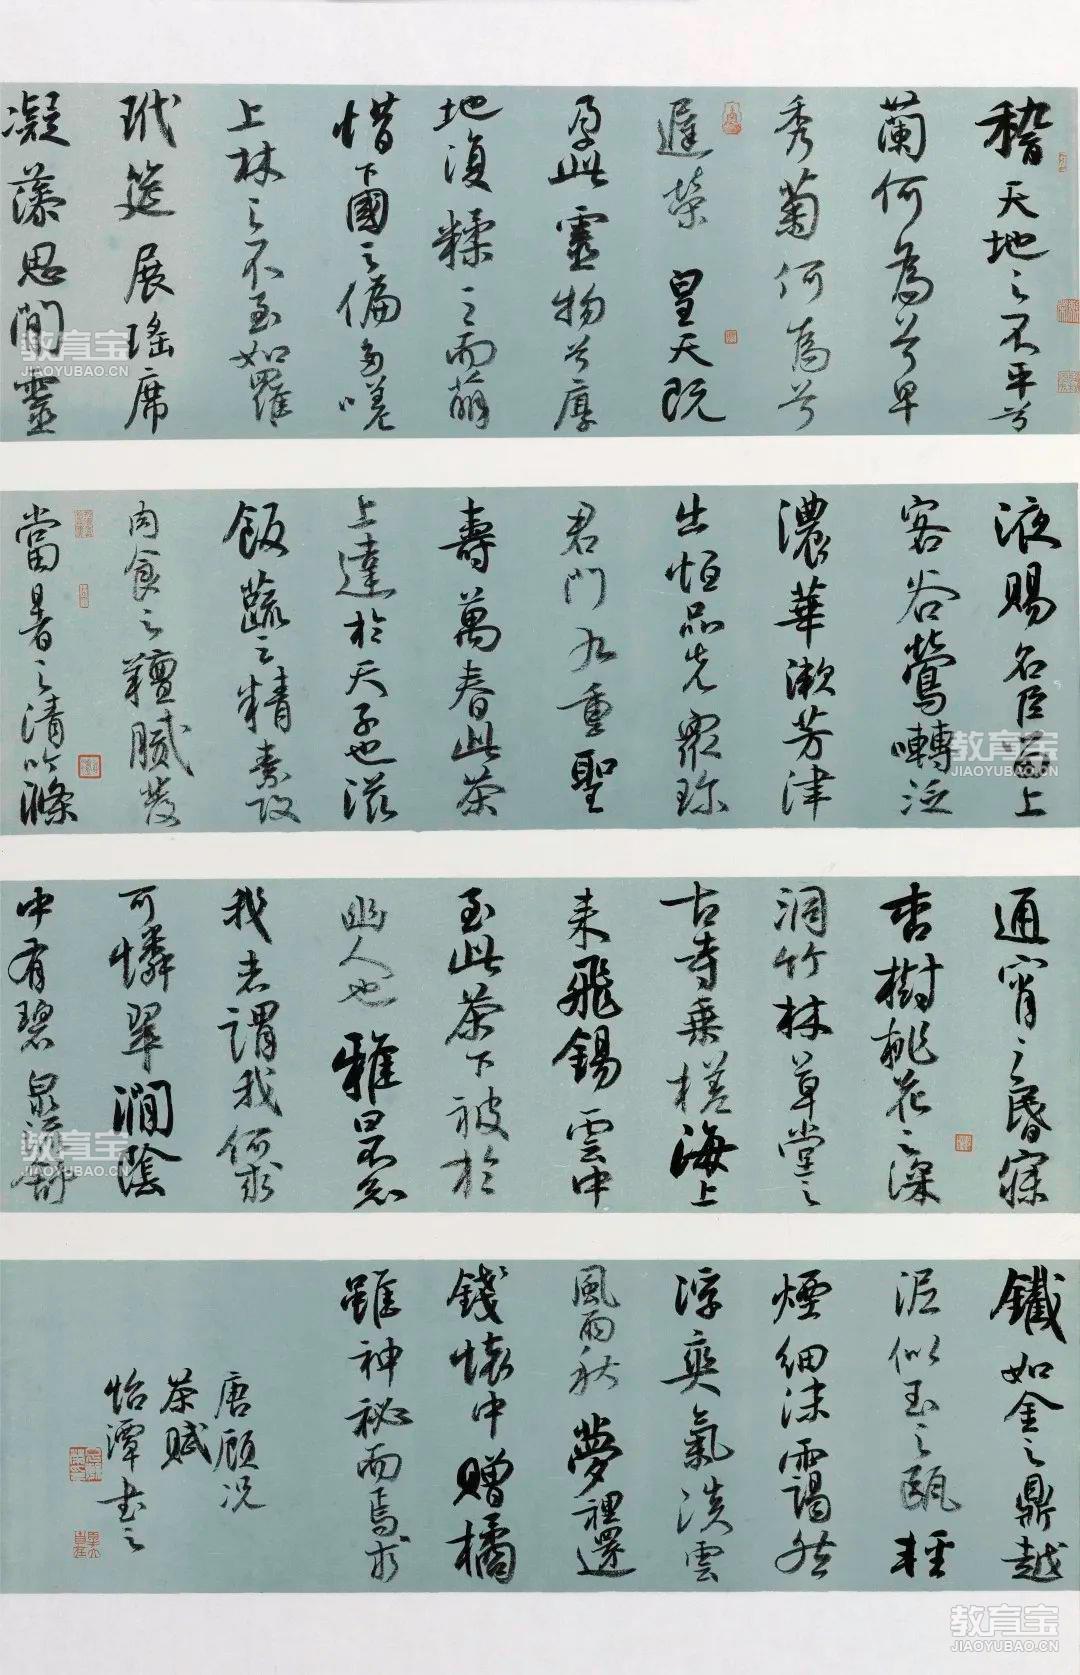 稽天地之不平兮
蘭何為兮早
秀菊何為兮
遲榮 皇天既
孕此靈物兮厚
地復糅之而萌
惜下國之偏多嗟
上林之不至如羅
玳筵展瑤席
凝藻思間靈
液賜名臣留上
客谷鶯囀泛
濃華漱芳津
出恒品先眾珍
君門九重聖
壽萬春此茶
上達於天子也滋
飯蔬之精素攻
肉食之羶膩發
當暑之清吟滌
通宵之昏寐
杏樹桃花之深
洞竹林草堂之
古寺乘槎海上
來飛錫雲中
至此茶下被於
幽人也雅曰不知
我者謂我何求
可憐翠澗陰
中有碧泉流舒
鐵如金之鼎越
泥似玉之甌輕
煙細沫靄然
浮爽氣淡雲
風雨秋夢裡還
錢懷中贈橘
雖神秘而焉求
唐顧況
茶賦
怡潭書之
教育宝
JIAOYUBAO.CN
教育宝
JIAOYUBAO.CN
教育宝
JIAOYUBAO.CN
教育宝
JIAOYUBAO.CN